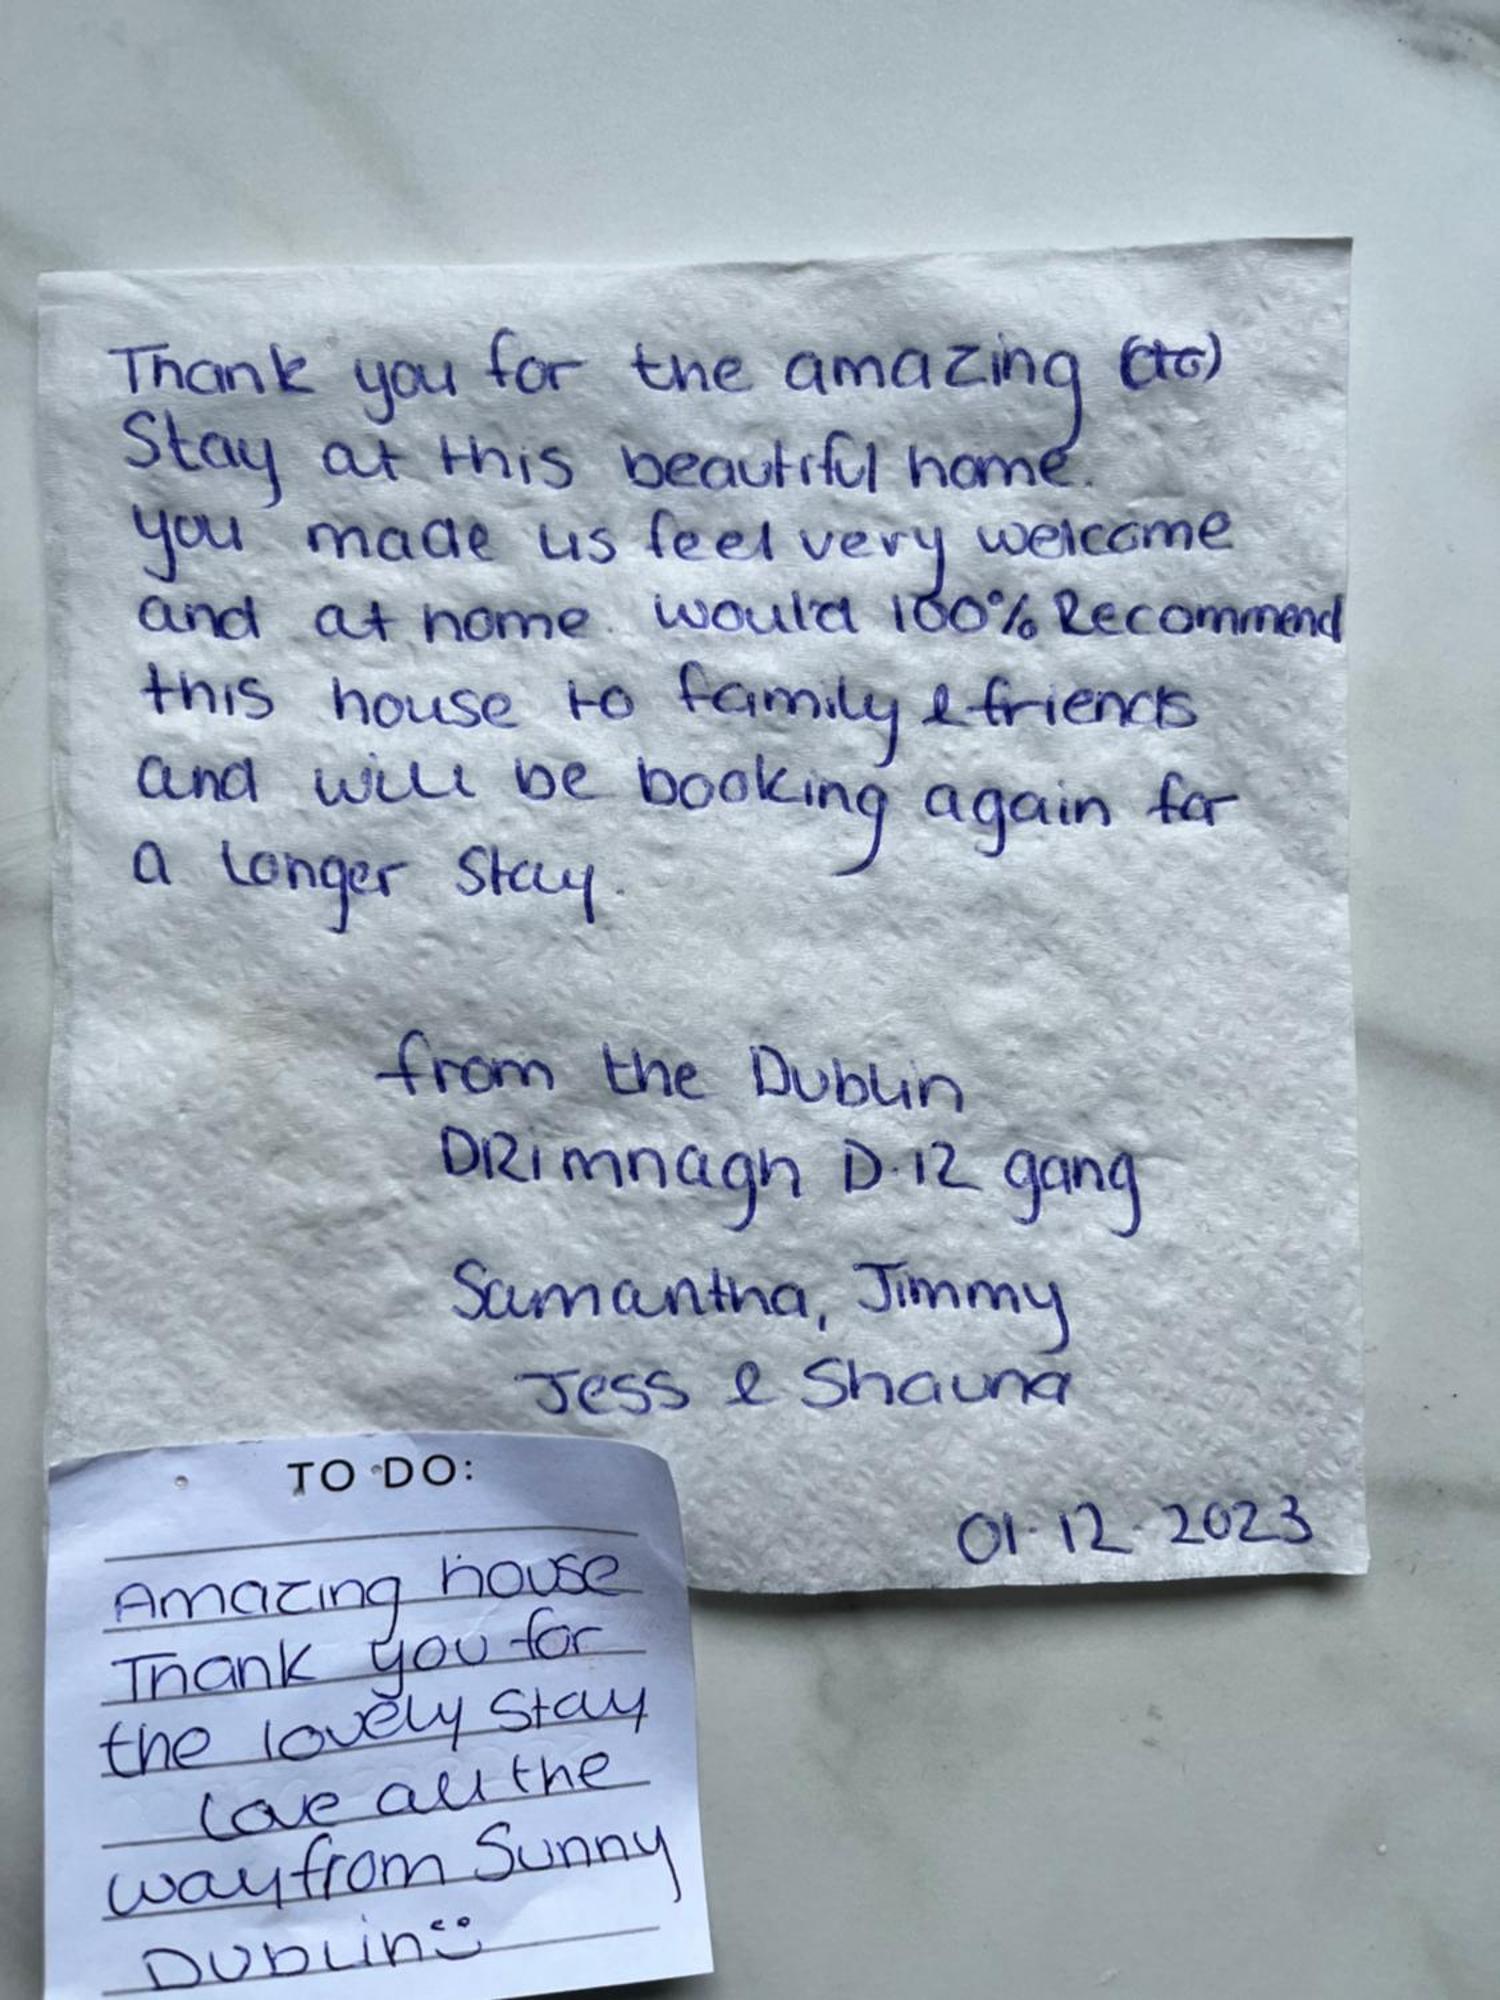 Thank you for the amazing
Stay at this beautiful home.
you made us feel very welcome
and at home. would 100% Recommend
this house to family & friends
and will be booking again for
a longer Stay.
from the Dublin
DRimnagh D.12 gang
Samantha, Jimmy
Jess & Shauna
01.12.2023
TO DO:
Amazing house
Thank you for
the lovely Stay
Love all the
way from Sunny
Dublin